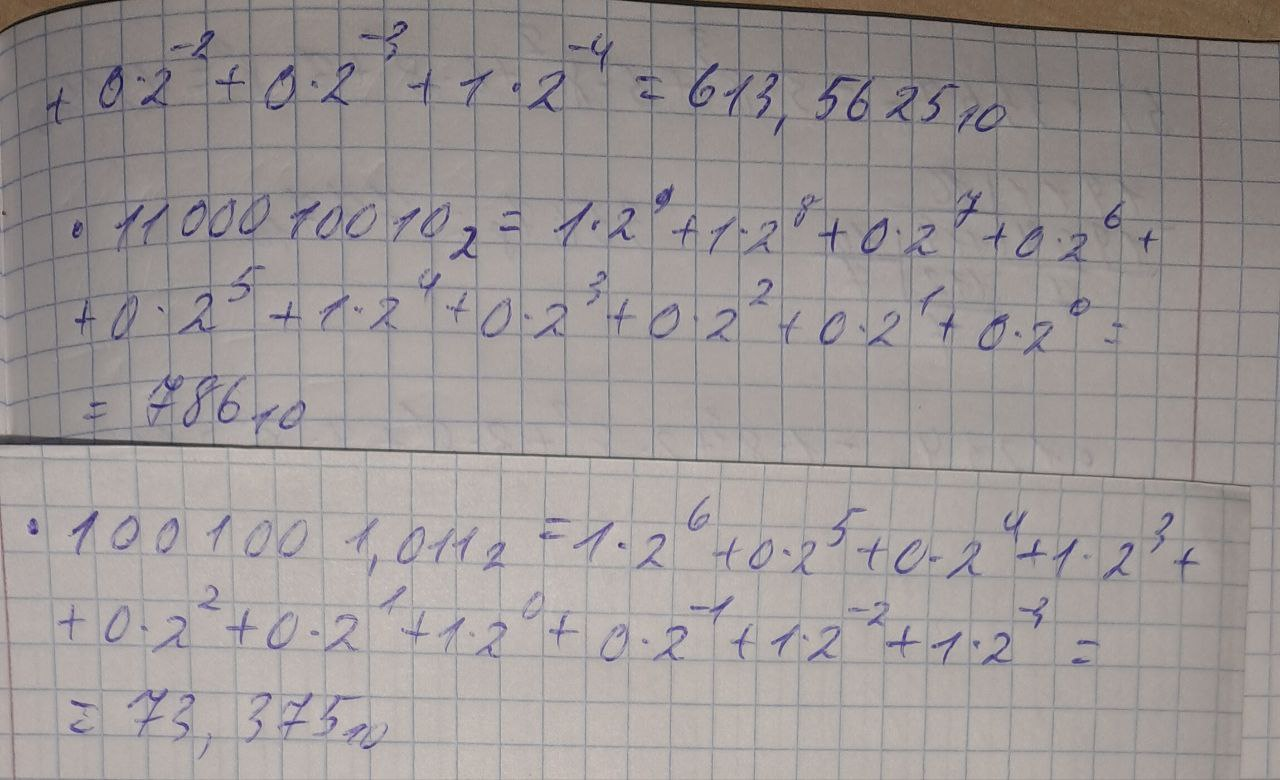 + 0·2⁻² + 0·2⁻³ + 1·2⁻⁴ = 613,5625₁₀
· 1100010010₂ = 1·2⁹ + 1·2⁸ + 0·2⁷ + 0·2⁶ +
+ 0·2⁵ + 1·2⁴ + 0·2³ + 0·2² + 0·2¹ + 0·2⁰ =
= 786₁₀
· 1001001,011₂ = 1·2⁶ + 0·2⁵ + 0·2⁴ + 1·2³ +
+ 0·2² + 0·2¹ + 1·2⁰ + 0·2⁻¹ + 1·2⁻² + 1·2⁻³ =
= 73,375₁₀